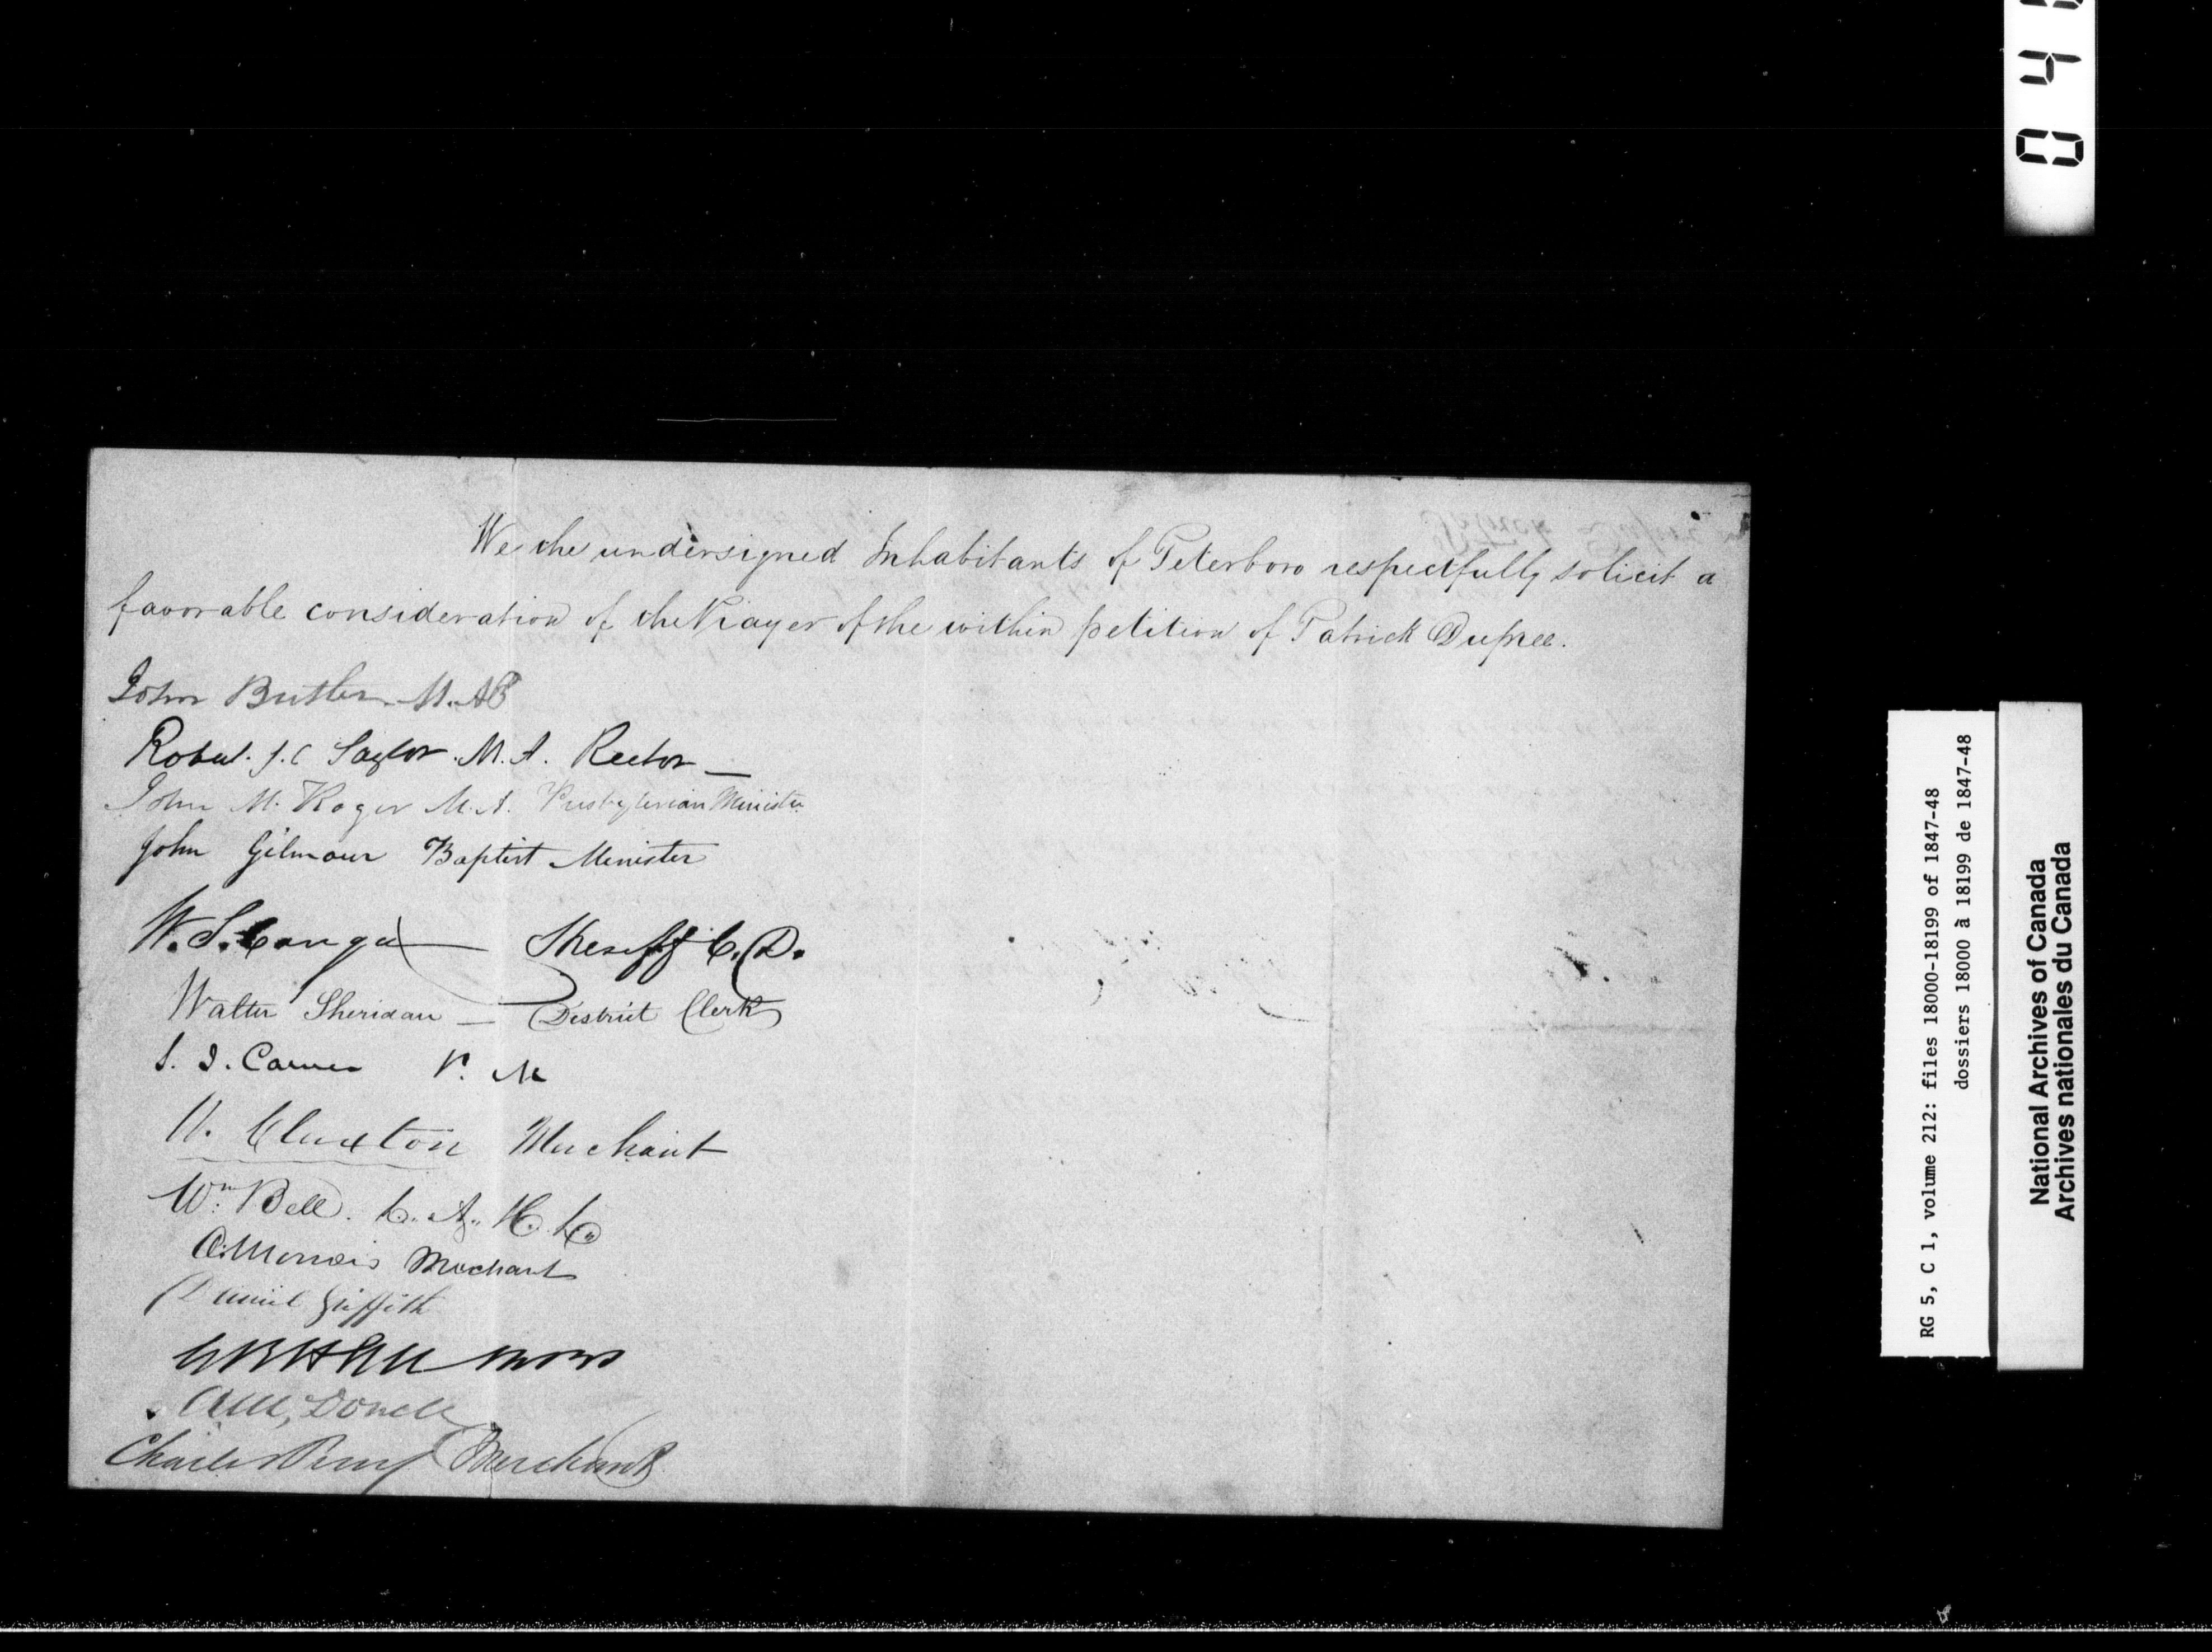 We the undersigned Inhabitants of Peterboro respectfully solicit a
favorable consideration of the Prayer of the within petition of Patrick Dupree.
John Butler M.AB
Robert. J.C Taylor. M.A. Rector
John M. Roger M.A. Presbyterian Minister
John Gilmour Baptist Minister
W. S. Conger Sheriff C.D.
Walter Sheridan — District Clerk
S. J. Carver P. M
W. Cluxton Merchant
Wm Bell.
Morrois Merchant
Daniel Griffith
Donell
Charles Perry Merchant
04
RG 5, C 1, volume 212: files 18000-18199 of 1847-48
dossiers 18000 à 18199 de 1847-48
National Archives of Canada
Archives nationales du Canada